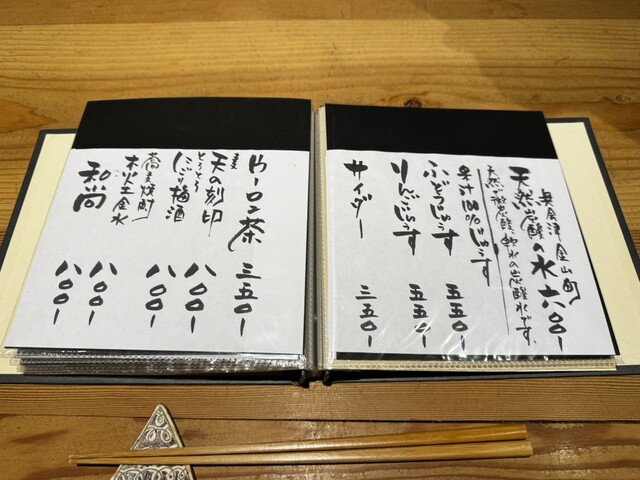 奥会津金山町
天然炭酸の水 六〇〇ー
天然で微炭酸、軟水の炭酸水です、
果汁100%じゅうす
ぶどうじゅうす 五五〇ー
りんごじゅうす 五五〇ー
サイダー 三五〇ー
ウーロン茶 三五〇ー
麦 天の刻印 八〇〇ー
とろとろ にごり梅酒 八〇〇ー
蕎麦焼酎
木火土金水 八〇〇ー
和尚 八〇〇ー